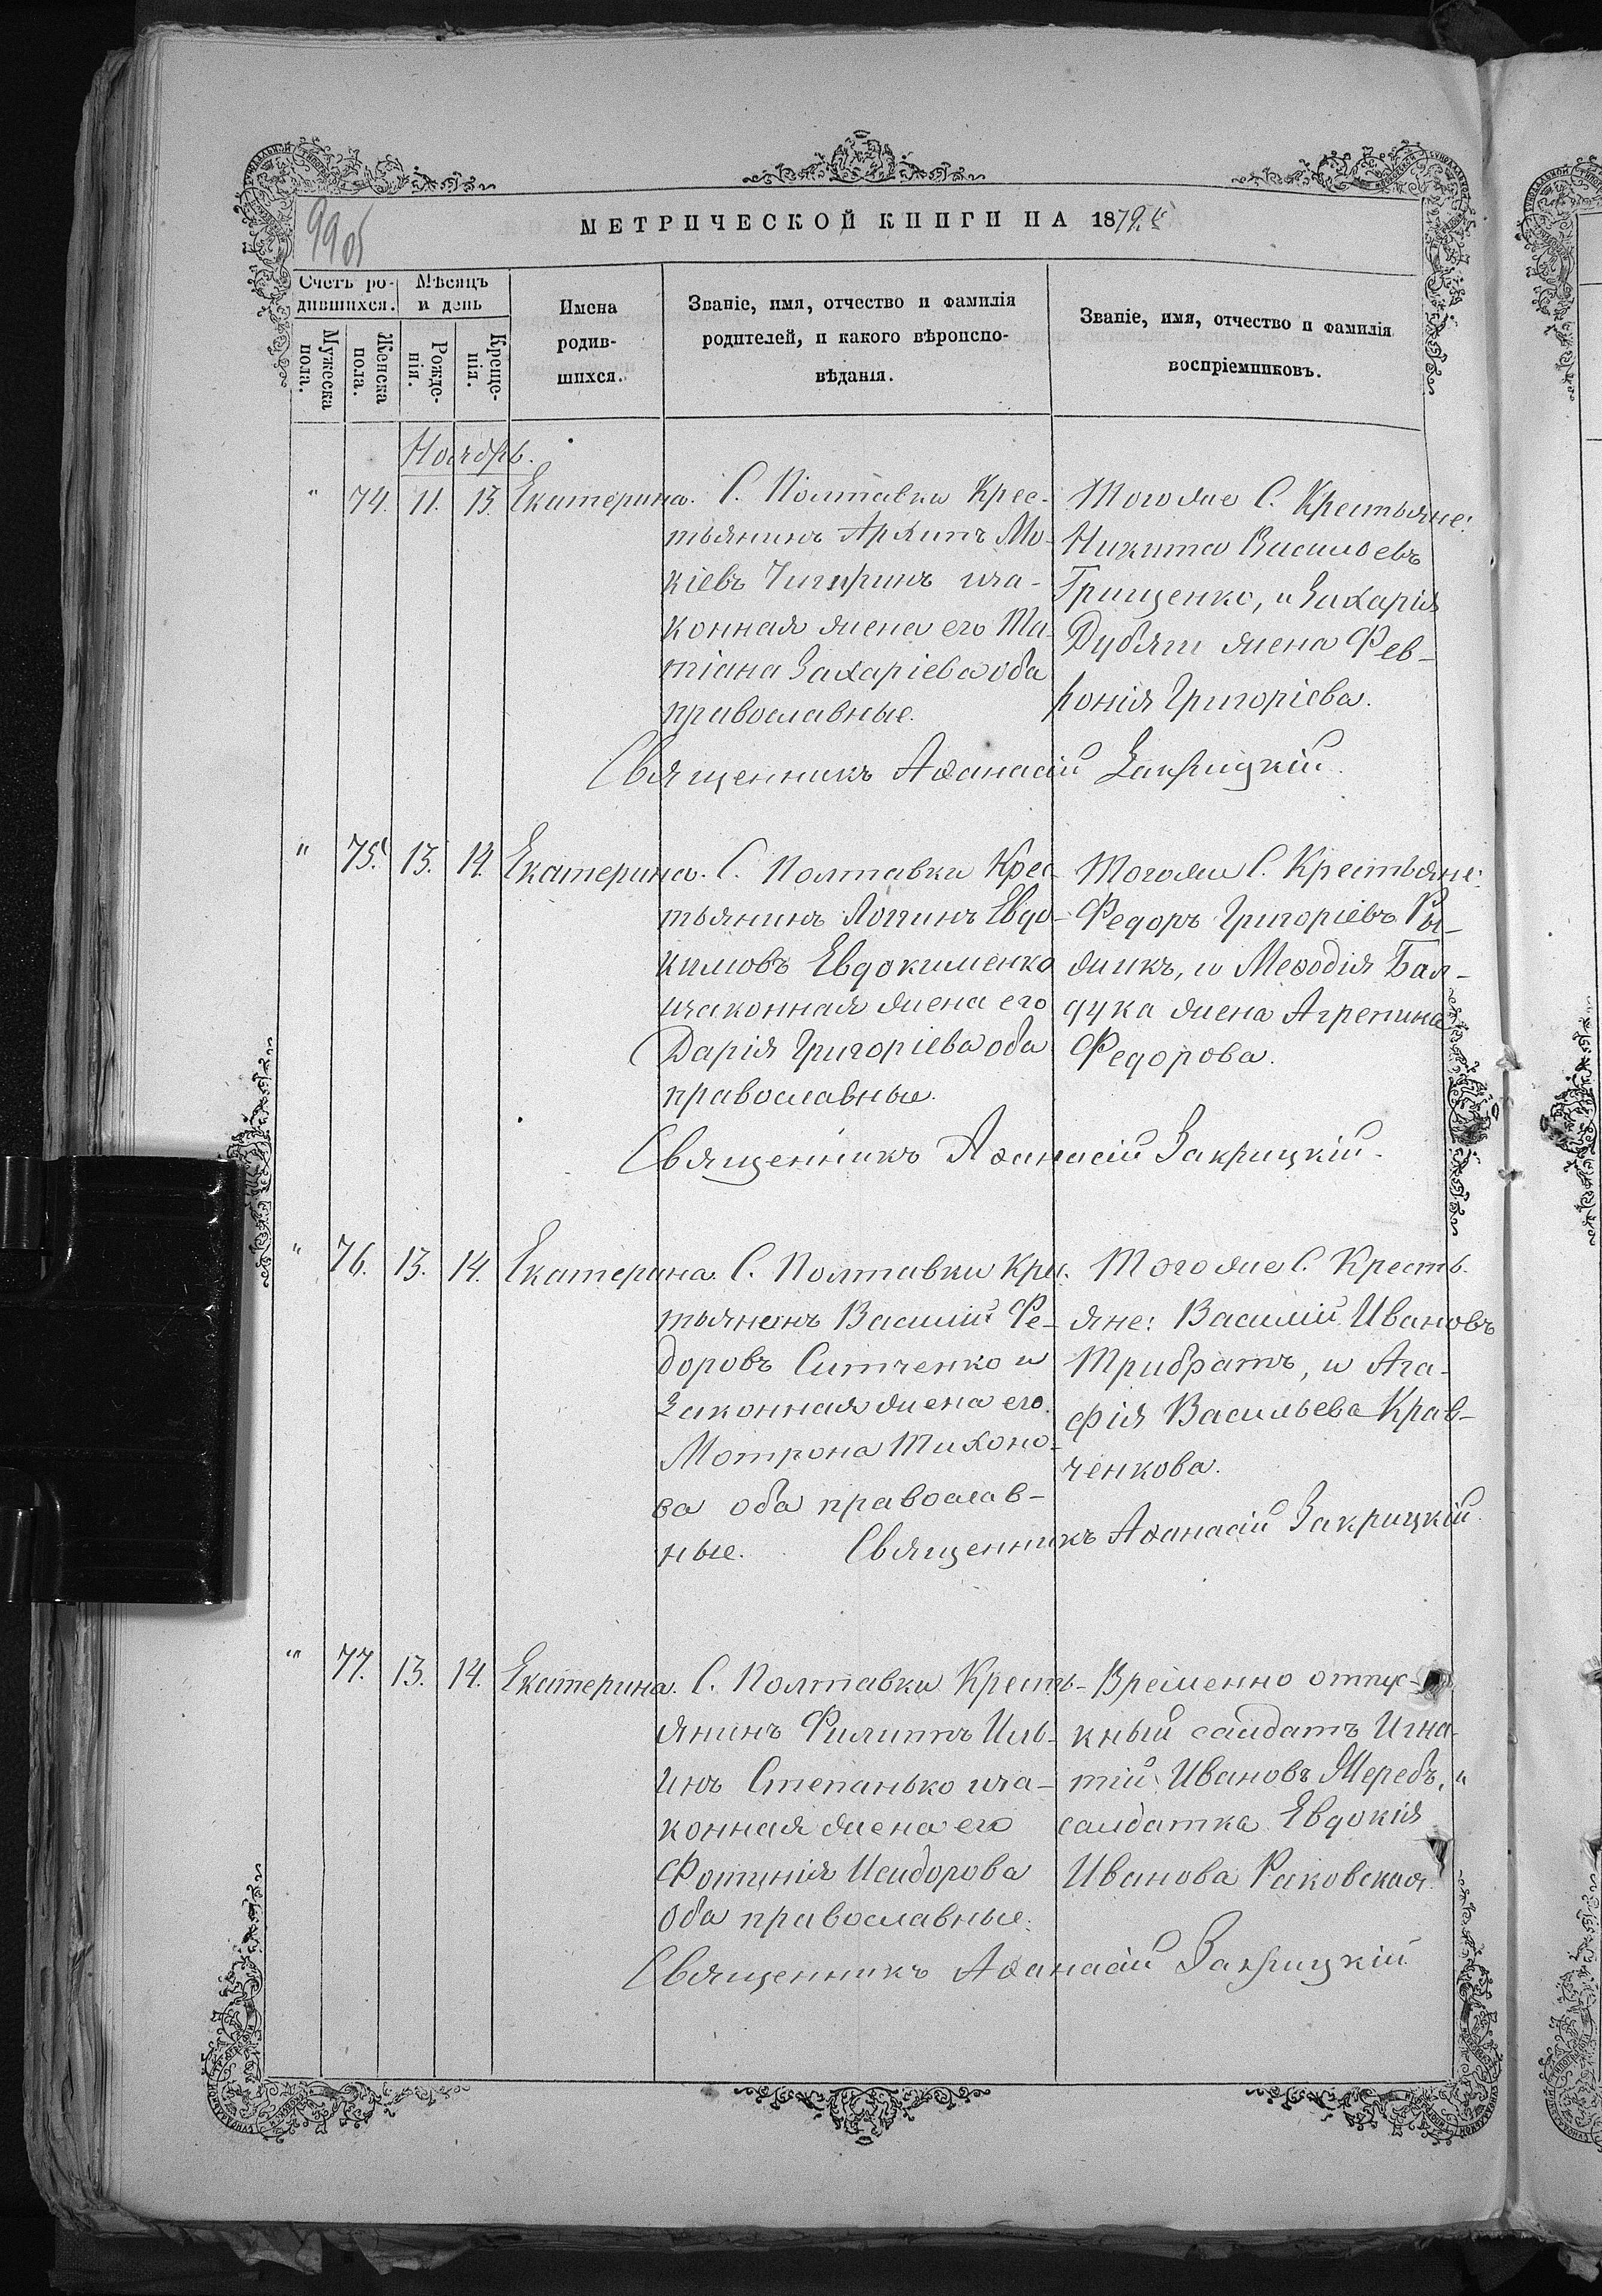 99об
МЕТРИЧЕСКОЙ КНИГИ НА 1872 г.
Счетъ ро-
дившихся.
Мѣсяцъ
и день
Мужеска
пола.
Женска
пола.
Рожде-
нія.
Креще-
нія.
Имена
родив-
шихся.
Званіе, имя, отчество и фамилія
родителей, и какого вѣроиспо-
вѣданія.
Званіе, имя, отчество и фамилія
воспріемниковъ.
Ноябрь.
" 74. 11. 13. Екатерина.
С. Полтавки Крес-
тьянинъ Архипъ Мо-
кіевъ Чигиринъ иза-
конная жена его Та-
тіана Захаріева оба
православные.
Тогоже С. Крестьяне:
Никита Васильевъ
Грищенко, и Захарія
Дубяги жена Фев-
ронія Григоріева.
Священникъ Аѳанасій Закрицкій.
" 75. 13. 14. Екатерина.
С. Полтавки Крес-
тьянинъ Логинъ Евдо-
кимовъ Евдокименко
изаконная жена его
Дарія Григоріева оба
православные.
Тогоже С. Крестьяне:
Федоръ Григоріевъ Ры-
жикъ, и Меѳодія Бал-
дука жена Агрепина
Федорова.
Священникъ Аѳанасій Закрицкій.
" 76. 13. 14. Екатерина.
С. Полтавки Крес-
тьянинъ Василій Фе-
доровъ Ситченко и
Законная жена его
Мотрона Тихоно-
ва оба православ-
ные.
Тогоже С. Кресть-
яне: Василій Ивановъ
Трибратъ, и Ага-
фія Васильева Крав-
ченкова.
Священникъ Аѳанасій Закрицкій.
" 77. 13. 14. Екатерина.
С. Полтавки Кресть-
янинъ Филиппъ Иль-
инъ Степанько иза-
конная жена его
Фотинія Исидорова
Оба православные.
Временно отпус-
кный салдатъ Игна-
тій Ивановъ Жеребъ, и
салдатка Евдокія
Иванова Раковская.
Священникъ Аѳанасій Закрицкій.